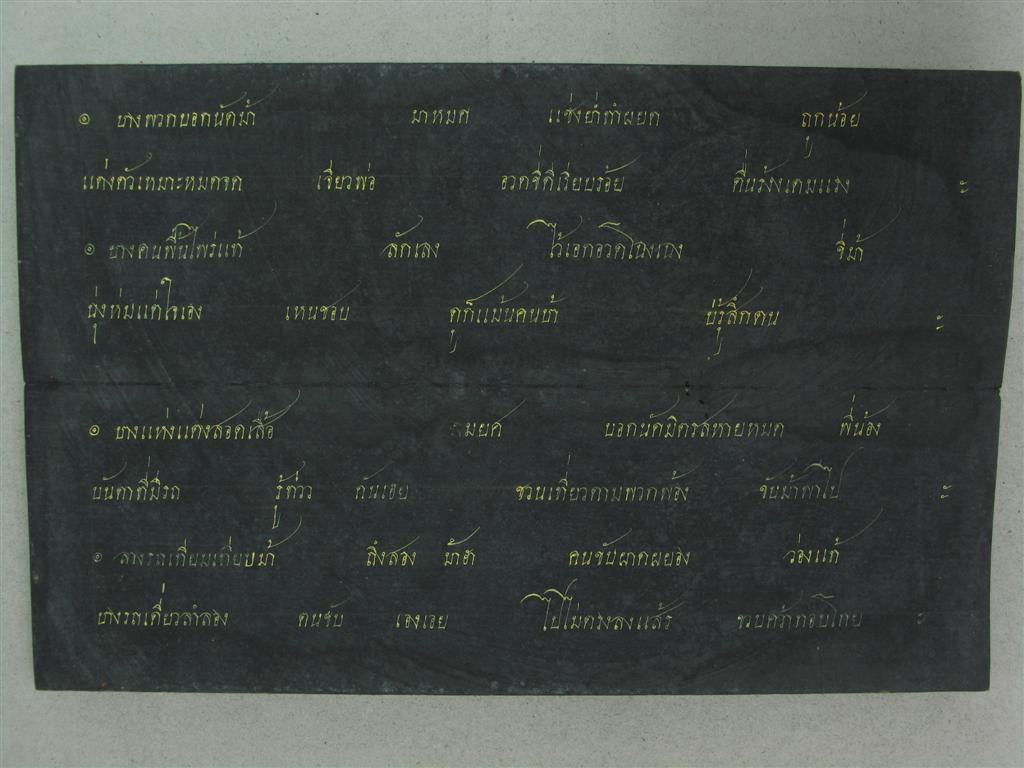 ๏ บางพวกบอกนัดม้า มาหมด แข่งย่ำทำผยด ลูกน้อย
แต่งตัวเหมาะหมดจด เจียวพ่อ อวดขี่ดีเรียบร้อย ตื่นร้องเตมแรง ะ
๏ บางคนพื้นไพร่แท้ ลักเลง ไว้เอกอวดโฉงเฉง ขี่ม้า
นุ่งห่มแต่ใจเอง เหนชอบ ดูก็แม้นคนบ้า บ่รู้สึกตน ะ
๏ บางแห่งแต่งสอดเสื้อ สมยศ บอกนัดมิตรสหายหมด พี่น้อง
บันดาที่มีรถ รู้ทั่ว กันเอย ชวนเที่ยวตามพวกพ้อง ขับม้าพาไป ะ
๏ ลางรถเทียมเทียบม้า ถึงสอง ม้าฮา คนขับผาดผยอง ว่องแท้
บางรถเดี่ยวลำลอง คนขับ เองเอย ไปไม่ตรงลงแส้ร ขวบคว้ากอบโกย ะ